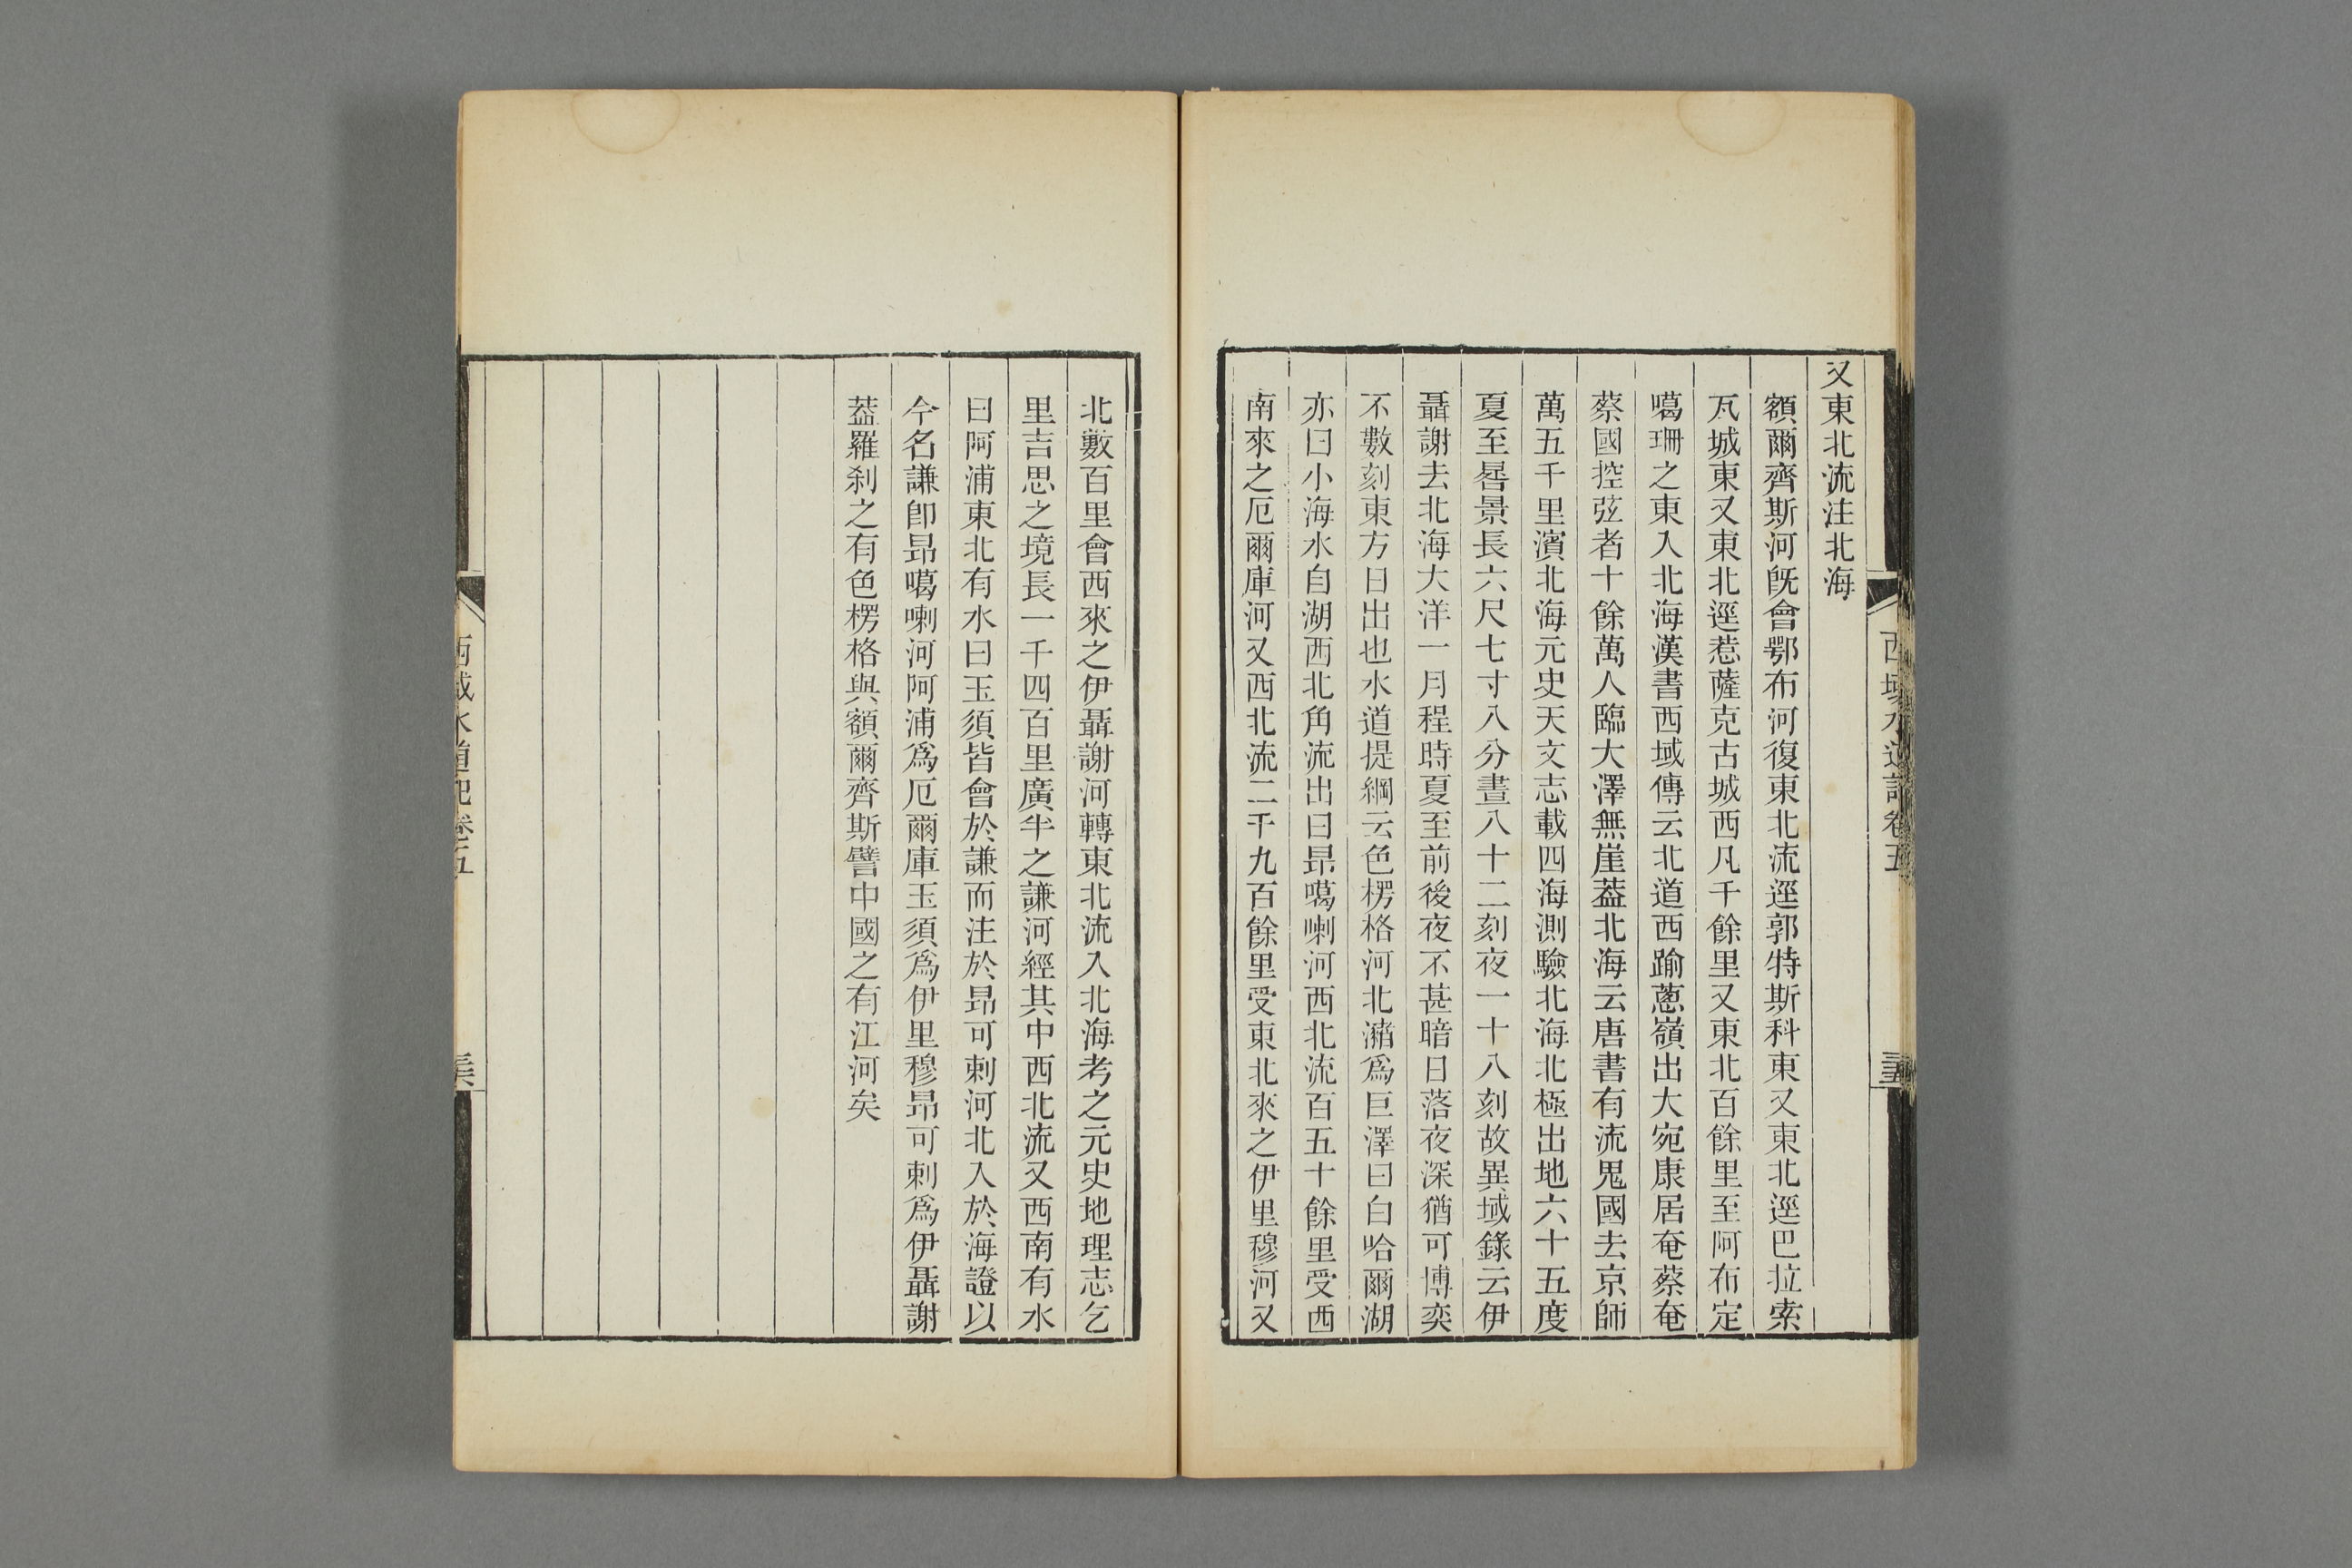 西域水道記卷五
又東北流注北海
額爾齊斯河旣會鄂布河復東北流逕郭特斯科東又東北逕巴拉索
瓦城東又東北逕惹薩克古城西凡千餘里又東北百餘里至阿布定
噶珊之東入北海漢書西域傳云北道西踰蔥嶺出大宛康居奄蔡奄
蔡國控弦者十餘萬人臨大澤無崖葢北海云唐書有流鬼國去京師
萬五千里濱北海元史天文志載四海測驗北海北極出地六十五度
夏至晷景長六尺七寸八分晝八十二刻夜一十八刻故異域錄云伊
聶謝去北海大洋一月程時夏至前後夜不甚暗日落夜深猶可博奕
不數刻東方日出也水道提綱云色楞格河北瀦爲巨澤曰白哈爾湖
亦曰小海水自湖西北角流出曰昻噶喇河西北流百五十餘里受西
南來之厄爾庫河又西北流二千九百餘里受東北來之伊里穆河又
北數百里會西來之伊聶謝河轉東北流入北海考之元史地理志乞
里吉思之境長一千四百里廣半之謙河經其中西北流又西南有水
曰阿浦東北有水曰玉須皆會於謙而注於昻可剌河北入於海證以
今名謙卽昻噶喇河阿浦爲厄爾庫玉須爲伊里穆昻可剌爲伊聶謝
葢羅刹之有色楞格與額爾齊斯譬中國之有江河矣
西域水道記卷五